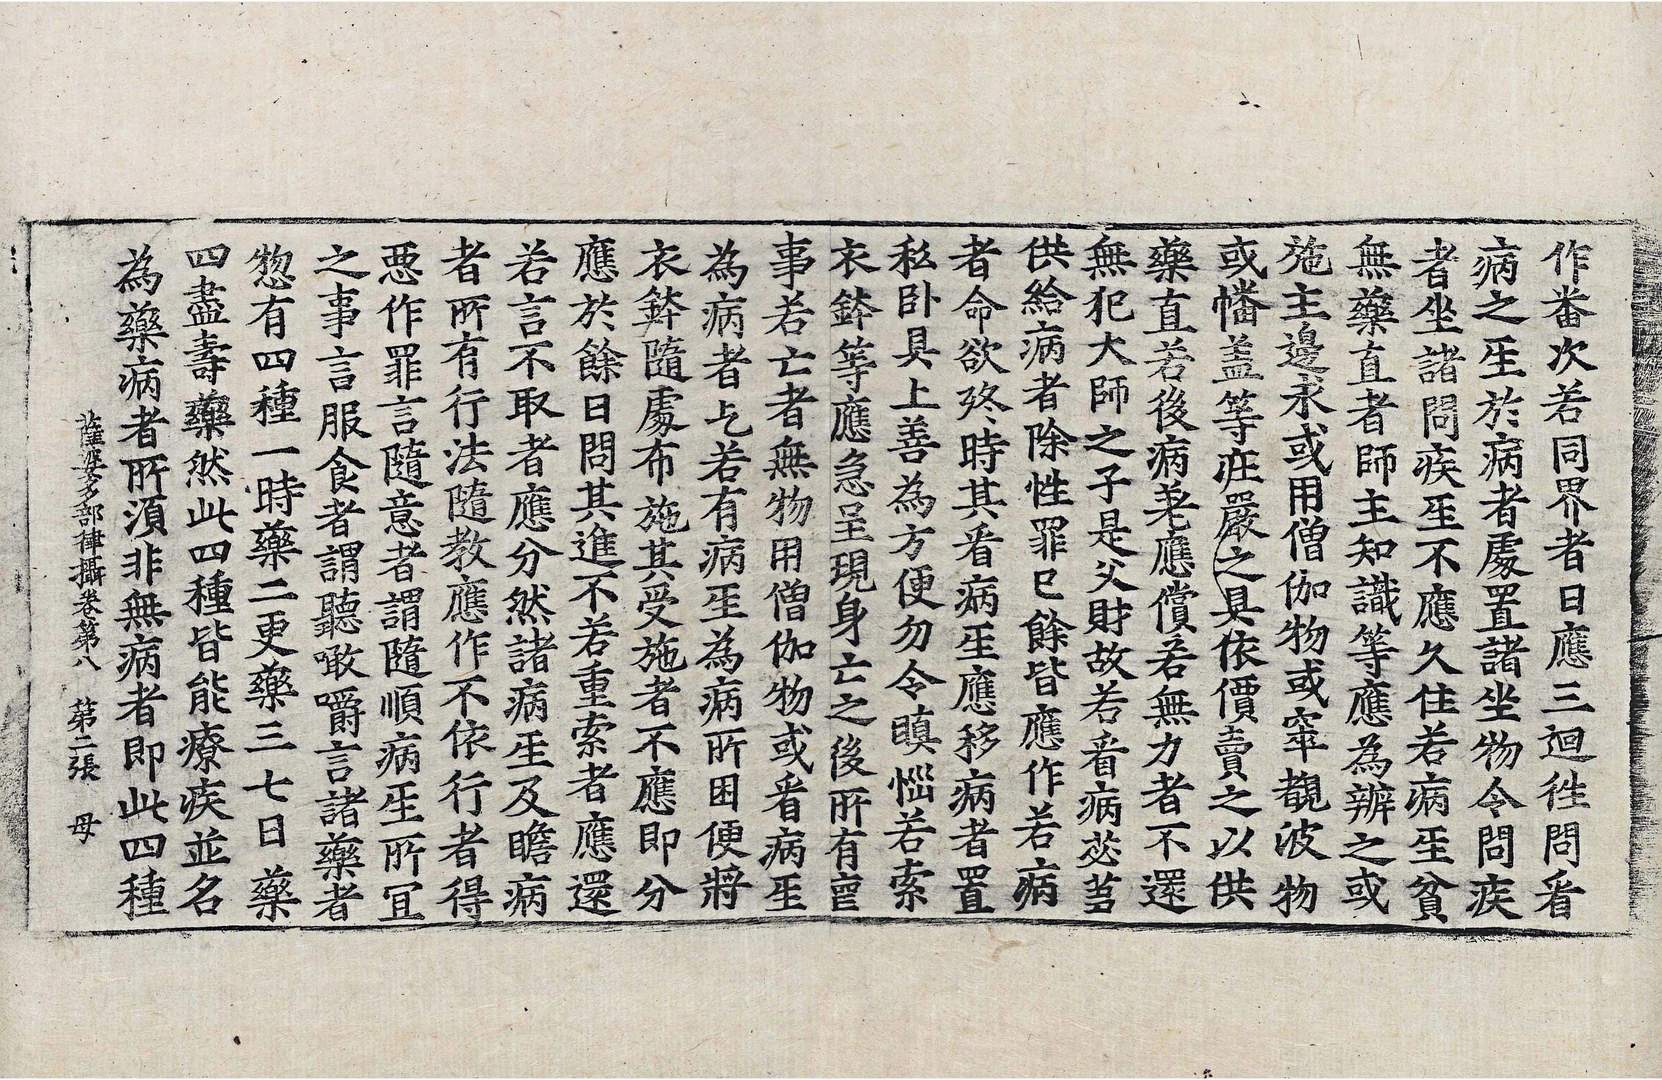 作番次若同界者日應三迴徃問看
病之𤯔於病者處置諸坐物令問疾
者坐諸問疾𤯔不應久住若病𤯔貧
無藥直者師主知識等應為辦之或
施主邊求或用僧伽物或窣覩波物
或幡盖等莊嚴之具依價賣之以供
藥直若後病差應償若無力者不還
無犯大師之子是父財故若看病苾芻
供給病者除性罪已餘皆應作若病
者命欲終時其看病𤯔應移病者置
私卧具上善為方便勿令瞋惱若索
衣鉢等應急呈現身亡之後所有喪
事若亡者無物用僧伽物或看病𤯔
為病者乞若有病𤯔為病所困便將
衣鉢隨處布施其受施者不應即分
應於餘日問其進不若重索者應還
若言不取者應分然諸病𤯔及瞻病
者所有行法隨教應作不依行者得
惡作罪言隨意者謂隨順病𤯔所宜
之事言服食者謂聽噉嚼言諸藥者
惣有四種一時藥二更藥三七日藥
四盡壽藥然此四種皆能療疾並名
為藥病者所湏非無病者即此四種
薩婆多部律攝卷第八 第二張 母